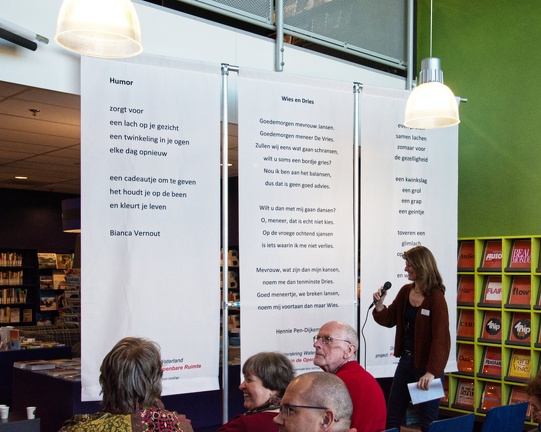 Humor
zorgt voor
een lach op je gezicht
een twinkeling in je ogen
elke dag opnieuw
een cadeautje om te geven
het houdt je op de been
en kleurt je leven
Bianca Vernout
Waterland
Openbare Ruimte
Wies en Dries
Goedemorgen mevrouw Jansen.
Goedemorgen meneer De Vries.
Zullen wij eens wat gaan schransen,
wilt u soms een bordje gries?
Nou ik ben aan het balansen,
dus dat is geen goed advies.
Wilt u dan met mij gaan dansen?
O, meneer, dat is echt niet kies.
Op de vroege ochtend sjansen
is iets waarin ik me niet verlies.
Mevrouw, wat zijn dan mijn kansen,
noem me dan tenminste Dries.
Goed meneertje, we breken lansen,
noem mij voortaan dan maar Wies.
Hennie Pen-Dijke
in de Open
samen lachen
zomaar voor
de gezelligheid
een kwinkslag
een grol
een grap
een geintje
toveren een
glimlach
AUTO
REAL
FLAIR
flow
CAR
fnip
fnip